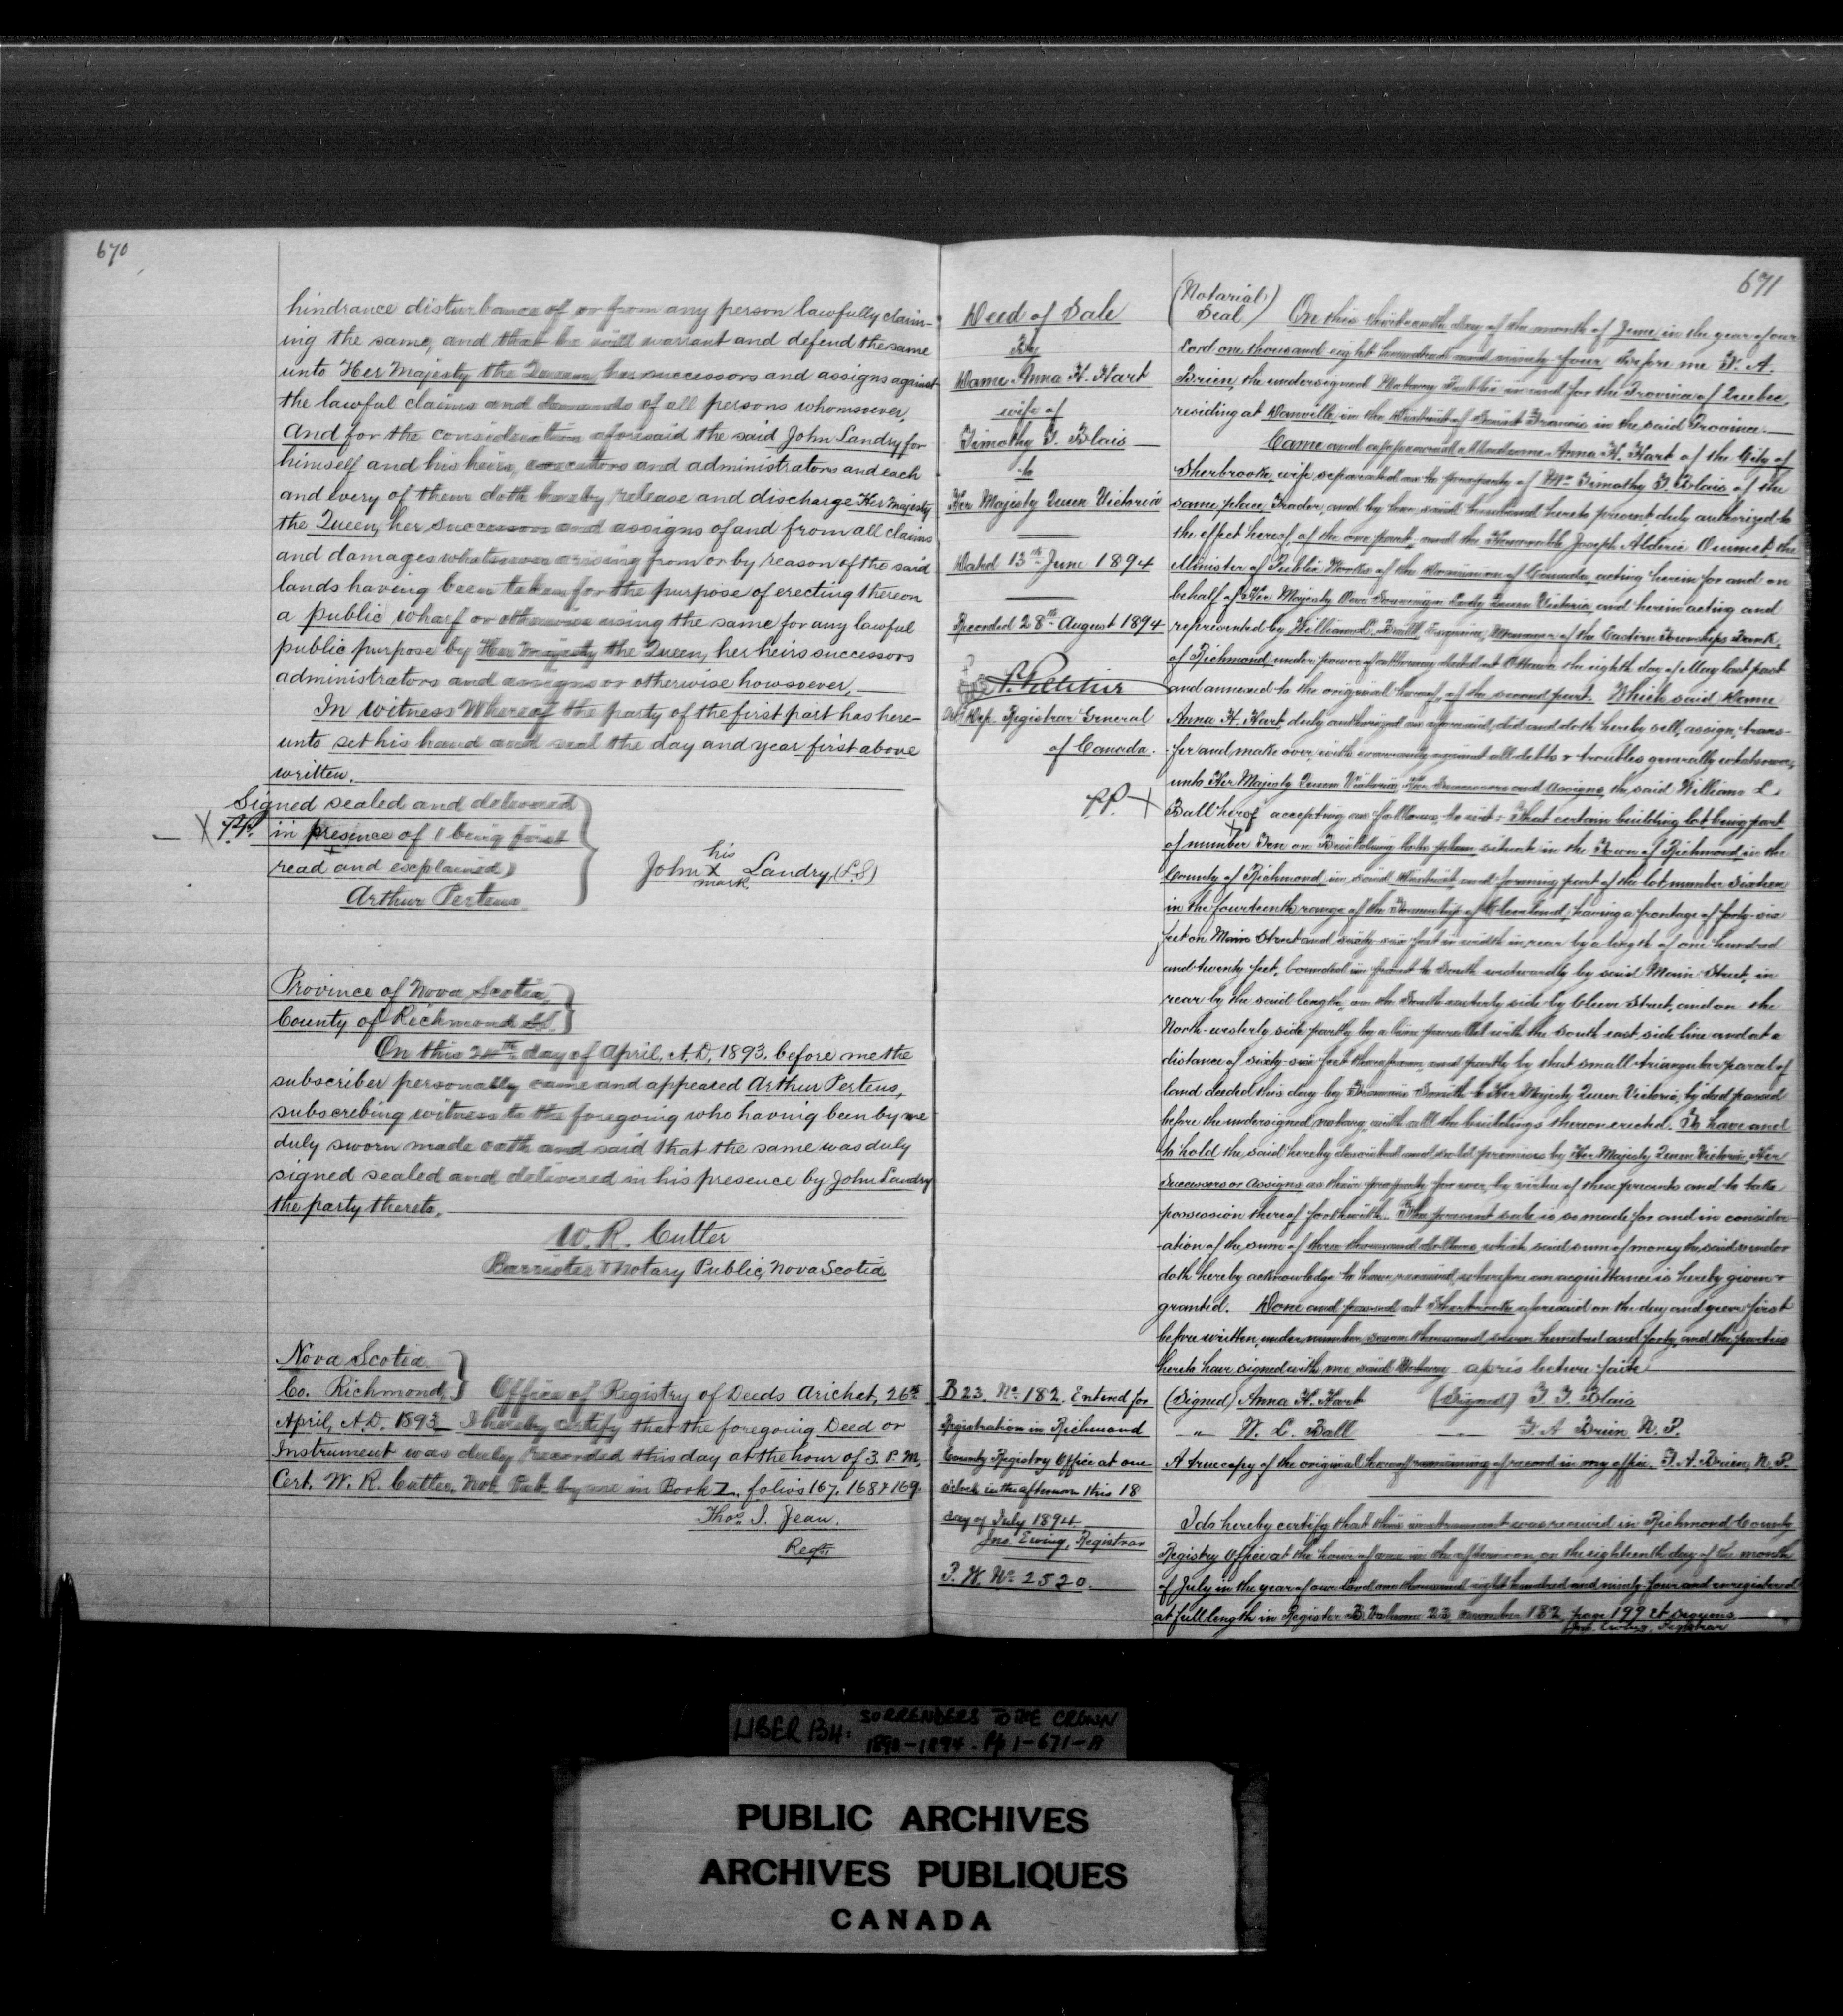 670
hindrance disturbance of or from any person lawfully claim-
ing the same, and that he will warrant and defend the same
unto Her Majesty the Queen, her successors and assigns against
the lawful claims and demands of all persons whomsoever,
And for the consideration aforesaid the said John Landry for
himself and his heirs, executors and administrators and each
and every of them doth hereby release and discharge Her Majesty
the Queen, her successors and assigns of and from all claims
and damages whatsoever arising from or by reason of the said
lands having been taken for the purpose of erecting thereon
a public wharf or otherwise using the same for any lawful
public purpose by Her Majesty the Queen, her heirs successors
administrators and assigns or otherwise howsoever,
In Witness Whereof the party of the first part has here-
unto set his hand and seal the day and year first above
written.
Signed sealed and delivered
X in presence of (being first
read and explained)
Arthur Pertens
his
John X Landry (L.S)
mark
Province of Nova Scotia,
County of Richmond SS.
On this 24th day of April, A.D. 1893. before me the
subscriber personally came and appeared Arthur Pertens,
subscribing witness to the foregoing who having been by me
duly sworn made oath and said that the same was duly
signed sealed and delivered in his presence by John Landry
the party thereto.
W. R. Cutler
Barrister & Notary Public, Nova Scotia
Nova Scotia
Co. Richmond, Office of Registry of Deeds Arichat, 26th
April, A.D. 1893 I hereby certify that the foregoing Deed or
Instrument was duly recorded this day at the hour of 3. P.M.
Cert. W. R. Cutler, Not. Pub. by me in Book Z, folios 167, 168 & 169.
Thos. I. Jean.
Regr.
671
Deed of Sale
By
Dame Anna H. Hart
wife of
Timothy T. Blais
to
Her Majesty Queen Victoria
Dated 13th June 1894
Recorded 28th August 1894
Dep. Registrar General
of Canada.
B 23. No. 182. Entered for
Registration in Richmond
County Registry Office at one
oclock in the afternoon this 18
day of July 1894.
Jno. Ewing, Registrar
P. W. No. 2520.
(Notarial
Seal) On this thirteenth day of the month of June, in the year of our
Lord one thousand eight hundred and ninety four Before me T. A.
Brien the undersigned Notary Public in and for the Province of Quebec,
residing at Danville, in the District of Saint Francis in the said Province.
Came and appeared Dame Anna H. Hart of the City of
Sherbrooke, wife separated as to property of Mr. Timothy T. Blais of the
same place, Trader, and by her said husband hereto present duly authorized to
the effect hereof of the one part, and the Honorable Joseph Aldéric Ouimet the
Minister of Public Works of the Dominion of Canada, acting herein for and on
behalf of Her Majesty Our Sovereign Lady Queen Victoria, and herein acting and
represented by William L. Ball Esquire, Manager of the Eastern Townships Bank,
of Richmond under power of attorney dated at Ottawa the eighth day of May last past
and annexed to the original hereof, of the second part. Which said Dame
Anna H. Hart duly authorized as aforesaid, did and doth hereby sell, assign, trans-
fer and make over, with warranty against all debts & troubles generally whatsoever,
unto Her Majesty Queen Victoria, Her Successors and Assigns, the said William L.
Ball hereof accepting as follows, to wit:- That certain building lot, being part
of number Ten on Building lots plan situate in the Town of Richmond in the
County of Richmond in said District and forming part of the lot number Sixteen
in the fourteenth range of the Township of Cleveland, having a frontage of forty-six
feet on Main Street and sixty-six feet in width in rear by a length of one hundred
and twenty feet, bounded in front to South westwardly by said Main Street, in
rear by the said length, on the South easterly side by Cleve Street, and on the
North-westerly side partly by a line parallel with the south east side line and at a
distance of sixty-six feet therefrom, and partly by that small triangular parcel of
land deeded this day by Francis Smith to Her Majesty Queen Victoria, by deed passed
before the undersigned notary, with all the buildings thereon erected. To have and
to hold the said hereby described and sold premises by Her Majesty Queen Victoria, Her
Successors or Assigns as their property for ever, by virtue of these presents and to take
possession thereof forthwith. The present sale is so made for and in consider-
ation of the sum of three thousand dollars, which said sum of money the said vendor
doth hereby acknowledge to have received, wherefore an acquittance is hereby given &
granted. Done and passed at Sherbrooke aforesaid on the day and year first
before written, under number seven thousand seven hundred and forty, and the parties
hereto have signed with me said Notary après lecture faite
(Signed) Anna H. Hart (Signed) T. T. Blais
" W. L. Ball T. A Brien N. P.
A true copy of the original hereof remaining of record in my office. T. A. Brien, N. P.
I do hereby certify that this instrument was received in Richmond County
Registry Office at the hour of one in the afternoon, on the eighteenth day of the month
of July in the year of our Lord one thousand eight hundred and ninety-four and enregistered
at full length in Register B. Volume 23 number 182, page 199 et sequens
Jno. Ewing, Registrar
LIBER B4: SURRENDERS TO THE CROWN
1890-1894. Pp 1-671-A
PUBLIC ARCHIVES
ARCHIVES PUBLIQUES
CANADA